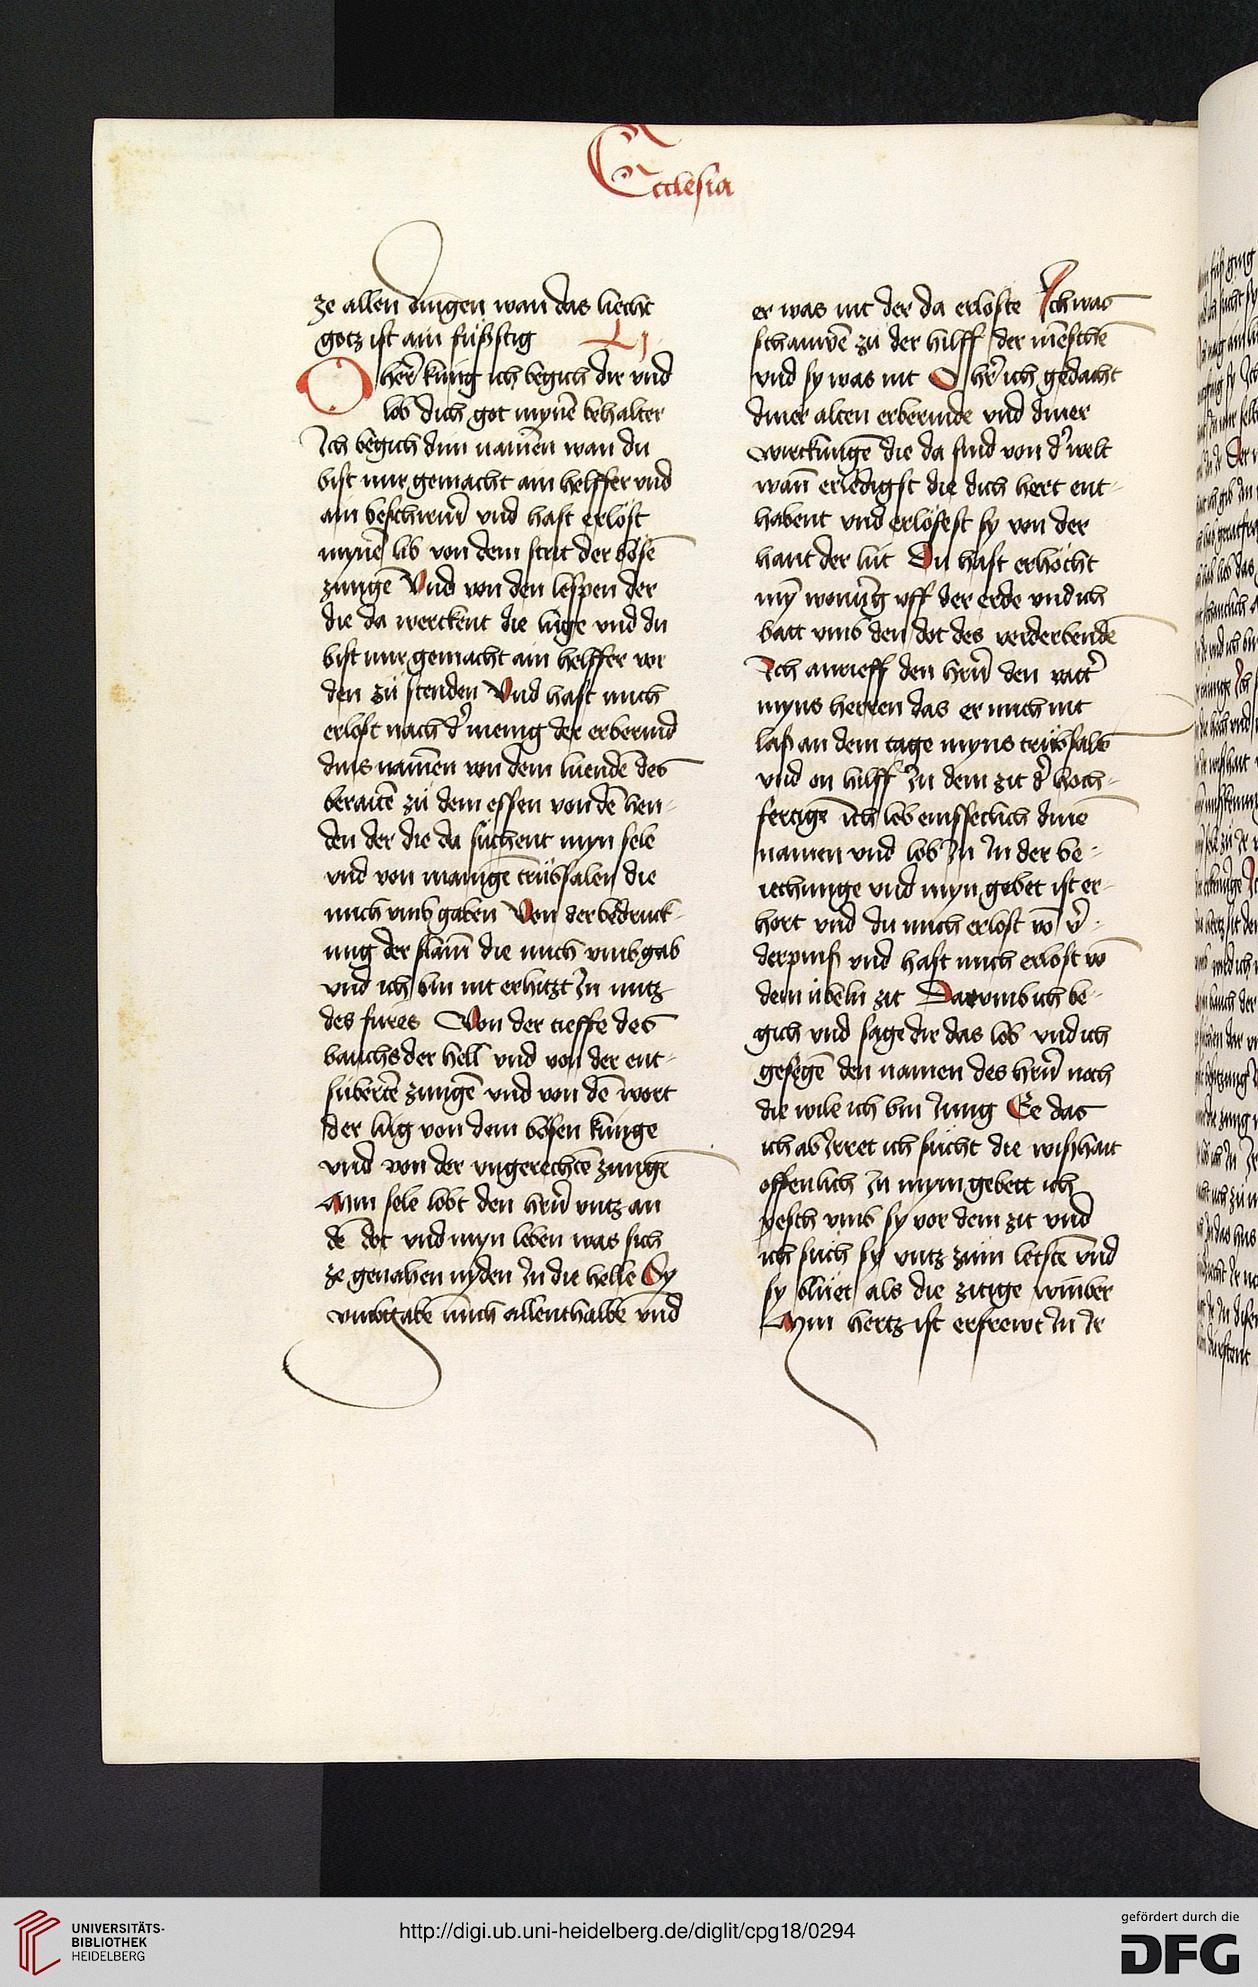 Ecclesia
ze allen dingen wan das liecht
gotz ist ain füsßstig Lj
O herr̄ kúng ich begich dir vnd
lob dich got mynē behalter
Ich begich dim namen wan du
bist mir gemacht ain helffer vnd
ain beschirmr̄ vnd hast erlöst
mynē lib von dem strit der bösē
zungē Vnd von den lespen der
die da werckent die lúge vnd du
bist mir gemacht ain helffer vor
den zů stenden Vnd hast mich
erlost nach dˢ menig der erbermd
dins namen von dem lúenden des
beraitē zů dem essen von dē hen-
den der die da sůchent myn sele
vnd von mangē trúbsalen die
mich vmb gaben Von der bedruck-
ung der flam̄ die mich vmb gab
vnd ich bin nit erhitzt Jn mitz
des fúres Von der tieffe des
bauchs der hell vnd von der ent-
súbertē zungē vnd von dē wort
der lúg von dem bösen kúnge
vnd von der vngerechtē zungē
Min sele lobt den hrn̄ vntz an
dē dot vnd myn leben was sich
ze genahen nyden Jn die helle Sy
vmbgabē mich allenthalbē vnd
er was nit der da erloste Ich was
schauwē zů der hilff der mēschē
vnd sy was nit O hr̄ ich gedacht
diner alten erbermde vnd diner
wirckungē die da sind von dˢ welt
wan̄ erledigst die dich herr ent-
habent vnd erlösest sy von der
hant der lút Du hast erhöcht
mȳ wonūg vff der erde vnd ich
batt vmb den dot des verderbendē
Ich anrieff den hrn̄ den vattˢ
myns herren das er mich nit
laß an dem tage myns trúbsals
vnd on hilff Jn dem zit dˢ hoch-
fertigē ich lob emsseclich dinē
namen vnd lob Jn Jn der be-
iechunge vnd myn gebet ist er-
hört vnd du mich erlost vō vˢ-
derpniß vnd hast mich erlost vō
dem úbeln zit Darvmb ich be-
gich vnd sage dir das lob vnd ich
gesegē den namen des hrn̄ noch
die wile ich bin Jung Ee das
ich ab Jrret ich sucht die wißhait
offenlich Jn mym gebett ich
yesch vmb sy vor dem zit vnd
ich such sy vntz zům letsten vnd
sy blúet als die zitige wimber
Mym hertz ist erfrewt Jn Jr
UNIVERSITÄTS-
BIBLIOTHEK
HEIDELBERG
http://digi.ub.uni-heidelberg.de/diglit/cpg18/0294
gefördert durch die
DFG